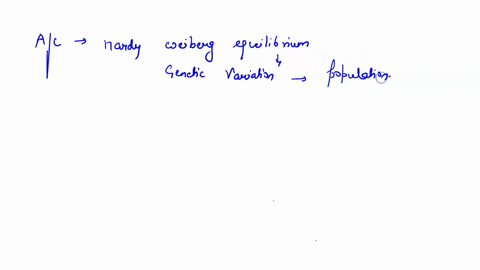 A/C → Hardy weiberg equilibrium
↓
Genetic Variation → population.